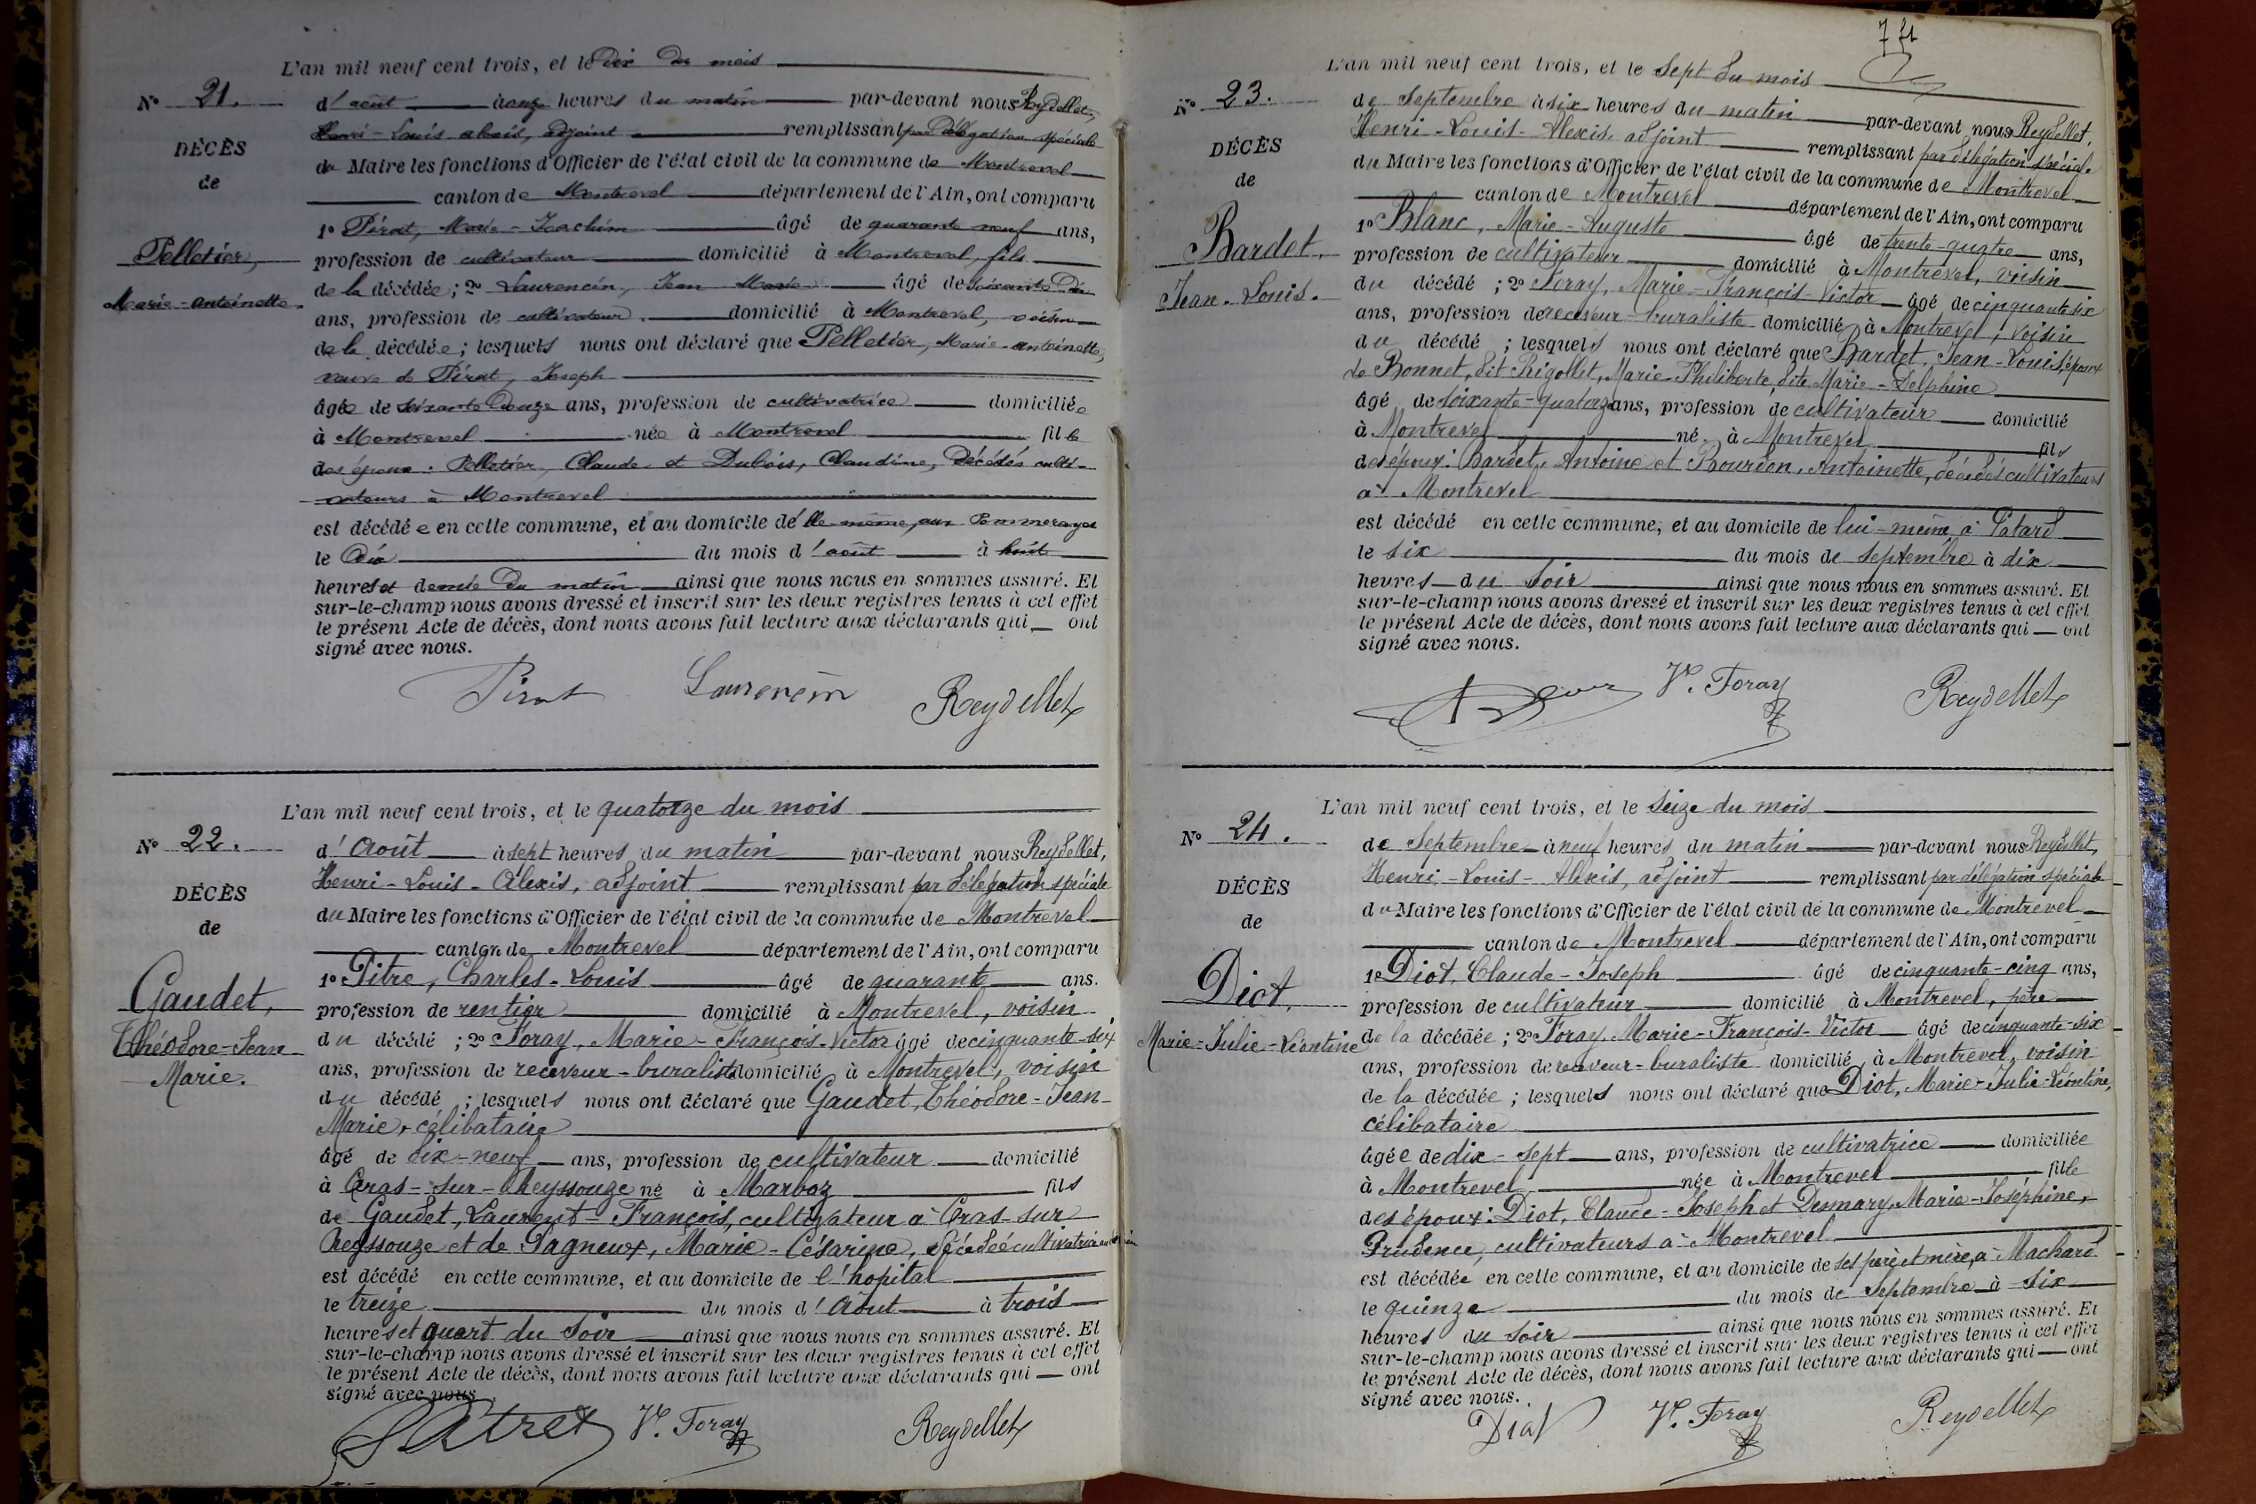 L'an mil neuf cent trois, et le Dix du mois
N° 21.
d'août à onze heures du matin par-devant nous Reydellet,
Henri-Louis alexis, adjoint remplissant par Délégation spéciale
DÉCÈS
du Maire les fonctions d'Officier de l'état civil de la commune de Montrevel
de
canton de Montrevel département de l'Ain, ont comparu
1° Pérat, Marie-Joachim âgé de quarante neuf ans,
Pelletier,
profession de cultivateur domicilié à Montrevel, fils
Marie-antoinette
de la décédée; 2° Laurencin, Jean Marie âgé de soixante Dix
ans, profession de cultivateur domicilié à Montrevel, voisin
de la décédée; lesquels nous ont déclaré que Pelletier, Marie-antoinette,
veuve de Pérat, Joseph
âgée de soixante Douze ans, profession de cultivatrice domiciliée
à Montrevel née à Montrevel fille
des époux: Pelletier, Claude et Dubois, Claudine, Décédés culti-
vateurs à Montrevel
est décédée en cette commune, et au domicile d'elle-même, aux
le Dix du mois d'août à huit
heures et demie Du matin ainsi que nous nous en sommes assuré. Et
sur-le-champ nous avons dressé et inscrit sur les deux registres tenus à cet effet
le présent Acte de décès, dont nous avons fait lecture aux déclarants qui ont
signé avec nous.
Laurencin Reydellet
L'an mil neuf cent trois, et le quatorze du mois
N° 22.
d'Août à sept heures du matin par-devant nous Reydellet,
Henri-Louis-Alexis, adjoint remplissant par délégation spéciale
DÉCÈS
du Maire les fonctions d'Officier de l'état civil de la commune de Montrevel
de
canton de Montrevel département de l'Ain, ont comparu
1° Pitre, Charles-Louis âgé de quarante ans.
Gaudet,
profession de rentier domicilié à Montrevel, voisin
Théodore-Jean
du décédé; 2° Foray, Marie-François-Victor âgé de cinquante-six
Marie.
ans, profession de receveur-buraliste domicilié à Montrevel, voisin
du décédé; lesquels nous ont déclaré que Gaudet, Théodore-Jean-
Marie, célibataire
âgé de dix-neuf ans, profession de cultivateur domicilié
à Cras-sur-Reyssouze né à Marboz fils
de Gaudet, Laurent-François, cultivateur à Cras-sur
Reyssouze et de Pagneux, Marie-Césarine, décédée cultivatrice
est décédé en cette commune, et au domicile de l'hopital
le treize du mois d'Août à trois
heures et quart du soir ainsi que nous nous en sommes assuré. Et
sur-le-champ nous avons dressé et inscrit sur les deux registres tenus à cet effet
le présent Acte de décès, dont nous avons fait lecture aux déclarants qui ont
signé avec nous.
Vr. Foray Reydellet
L'an mil neuf cent trois, et le sept du mois
N° 23.
de Septembre à six heures du matin par-devant nous Reydellet,
Henri-Louis-Alexis, adjoint remplissant par délégation spéciale
DÉCÈS
du Maire les fonctions d'Officier de l'état civil de la commune de Montrevel
de
canton de Montrevel département de l'Ain, ont comparu
1° Blanc, Marie-Auguste âgé de trente-quatre ans,
Bardet,
profession de cultivateur domicilié à Montrevel, voisin
Jean-Louis.
du décédé; 2° Foray, Marie-François-Victor âgé de cinquante six
ans, profession de receveur-buraliste domicilié à Montrevel, voisin
du décédé; lesquels nous ont déclaré que Bardet, Jean-Louis, époux
de Bonnet, dit Rigollet, Marie-Philiberte, dite Marie-Delphine
âgé de soixante-quatorze ans, profession de cultivateur domicilié
à Montrevel né à Montrevel fils
des époux: Bardet, Antoine et Bourdon, Antoinette, décédés cultivateurs
à Montrevel
est décédé en cette commune, et au domicile de lui-même à
le six du mois de septembre à dix
heures du soir ainsi que nous nous en sommes assuré. Et
sur-le-champ nous avons dressé et inscrit sur les deux registres tenus à cet effet
le présent Acte de décès, dont nous avons fait lecture aux déclarants qui ont
signé avec nous.
Vr. Foray Reydellet
L'an mil neuf cent trois, et le seize du mois
N° 24.
de Septembre à neuf heures du matin par-devant nous Reydellet,
Henri-Louis-Alexis, adjoint remplissant par délégation spéciale
DÉCÈS
du Maire les fonctions d'Officier de l'état civil de la commune de Montrevel
de
canton de Montrevel département de l'Ain, ont comparu
1° Diot, Claude-Joseph âgé de cinquante-cinq ans,
Diot,
profession de cultivateur domicilié à Montrevel, père
Marie-Julie-Léontine
de la décédée; 2° Foray, Marie-François-Victor âgé de cinquante-six
ans, profession de receveur-buraliste domicilié à Montrevel, voisin
de la décédée; lesquels nous ont déclaré que Diot, Marie-Julie-Léontine,
célibataire
âgée de dix-sept ans, profession de cultivatrice domiciliée
à Montrevel née à Montrevel fille
des époux: Diot, Claude-Joseph et Marie-Joséphine,
Prudence, cultivateurs à Montrevel
est décédée en cette commune, et au domicile de ses père et mère, à Machard
le quinze du mois de Septembre à six
heures du soir ainsi que nous nous en sommes assuré. Et
sur-le-champ nous avons dressé et inscrit sur les deux registres tenus à cet effet
le présent Acte de décès, dont nous avons fait lecture aux déclarants qui ont
signé avec nous.
Diot Vr. Foray Reydellet